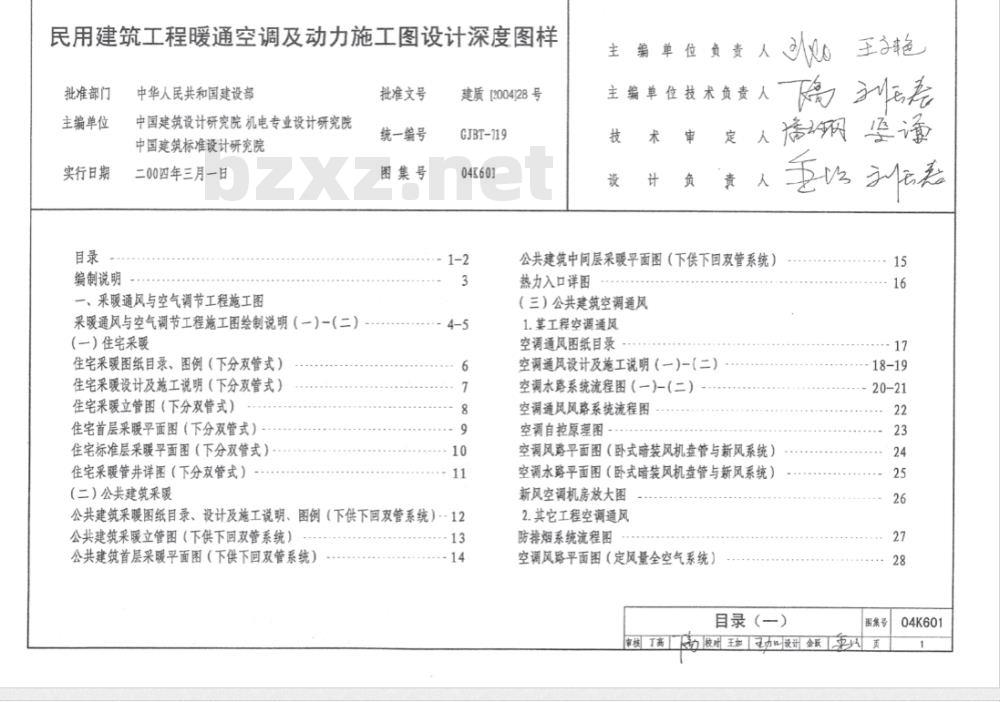 民用建筑工程暖通空调及动力施工图设计深度图样
批准部门 中华人民共和国建设部 批准文号 建质[2004]28号
主编单位 中国建筑设计研究院 机电专业设计研究院 统一编号 GJBT-719
中国建筑标准设计研究院
实行日期 二00四年三月一日 图集号 04K601
主编单位负责人
主编单位技术负责人
技术审定人
设计负责人
bzxz.net
目录 1-2
编制说明 3
一、采暖通风与空气调节工程施工图
采暖通风与空气调节工程施工图绘制说明(一)-(二) 4-5
(一)住宅采暖
住宅采暖图纸目录、图例(下分双管式) 6
住宅采暖设计及施工说明(下分双管式) 7
住宅采暖立管图(下分双管式) 8
住宅首层采暖平面图(下分双管式) 9
住宅标准层采暖平面图(下分双管式) 10
住宅采暖管井详图(下分双管式) 11
(二)公共建筑采暖
公共建筑采暖图纸目录、设计及施工说明、图例(下供下回双管系统) 12
公共建筑采暖立管图(下供下回双管系统) 13
公共建筑首层采暖平面图(下供下回双管系统) 14
公共建筑中间层采暖平面图(下供下回双管系统) 15
热力入口详图 16
(三)公共建筑空调通风
1.某工程空调通风
空调通风图纸目录 17
空调通风设计及施工说明(一)-(二) 18-19
空调水路系统流程图(一)-(二) 20-21
空调通风风路系统流程图 22
空调自控原理图 23
空调风路平面图(卧式暗装风机盘管与新风系统) 24
空调水路平面图(卧式暗装风机盘管与新风系统) 25
新风空调机房放大图 26
2.其它工程空调通风
防排烟系统流程图 27
空调风路平面图(定风量全空气系统) 28
目录(一) 图集号 04K601
审核 丁高 校对 王加 设计 金跃 页 1